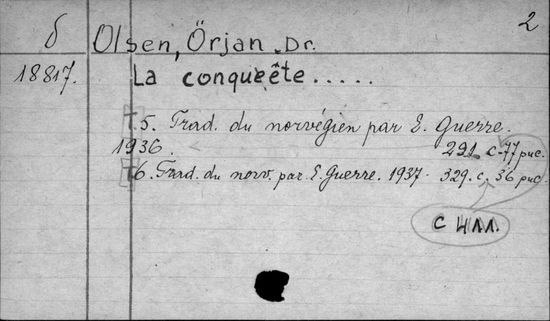 б Olsen, Örjan, Dr. 2
18817. La conqueête.....
T.5. Trad. du norvégien par E. Guerre.
1936. 291 с. 77 рис.
T6. Trad. du norv. par E. Guerre. 1937. 329. с, 36 рис.
с илл.